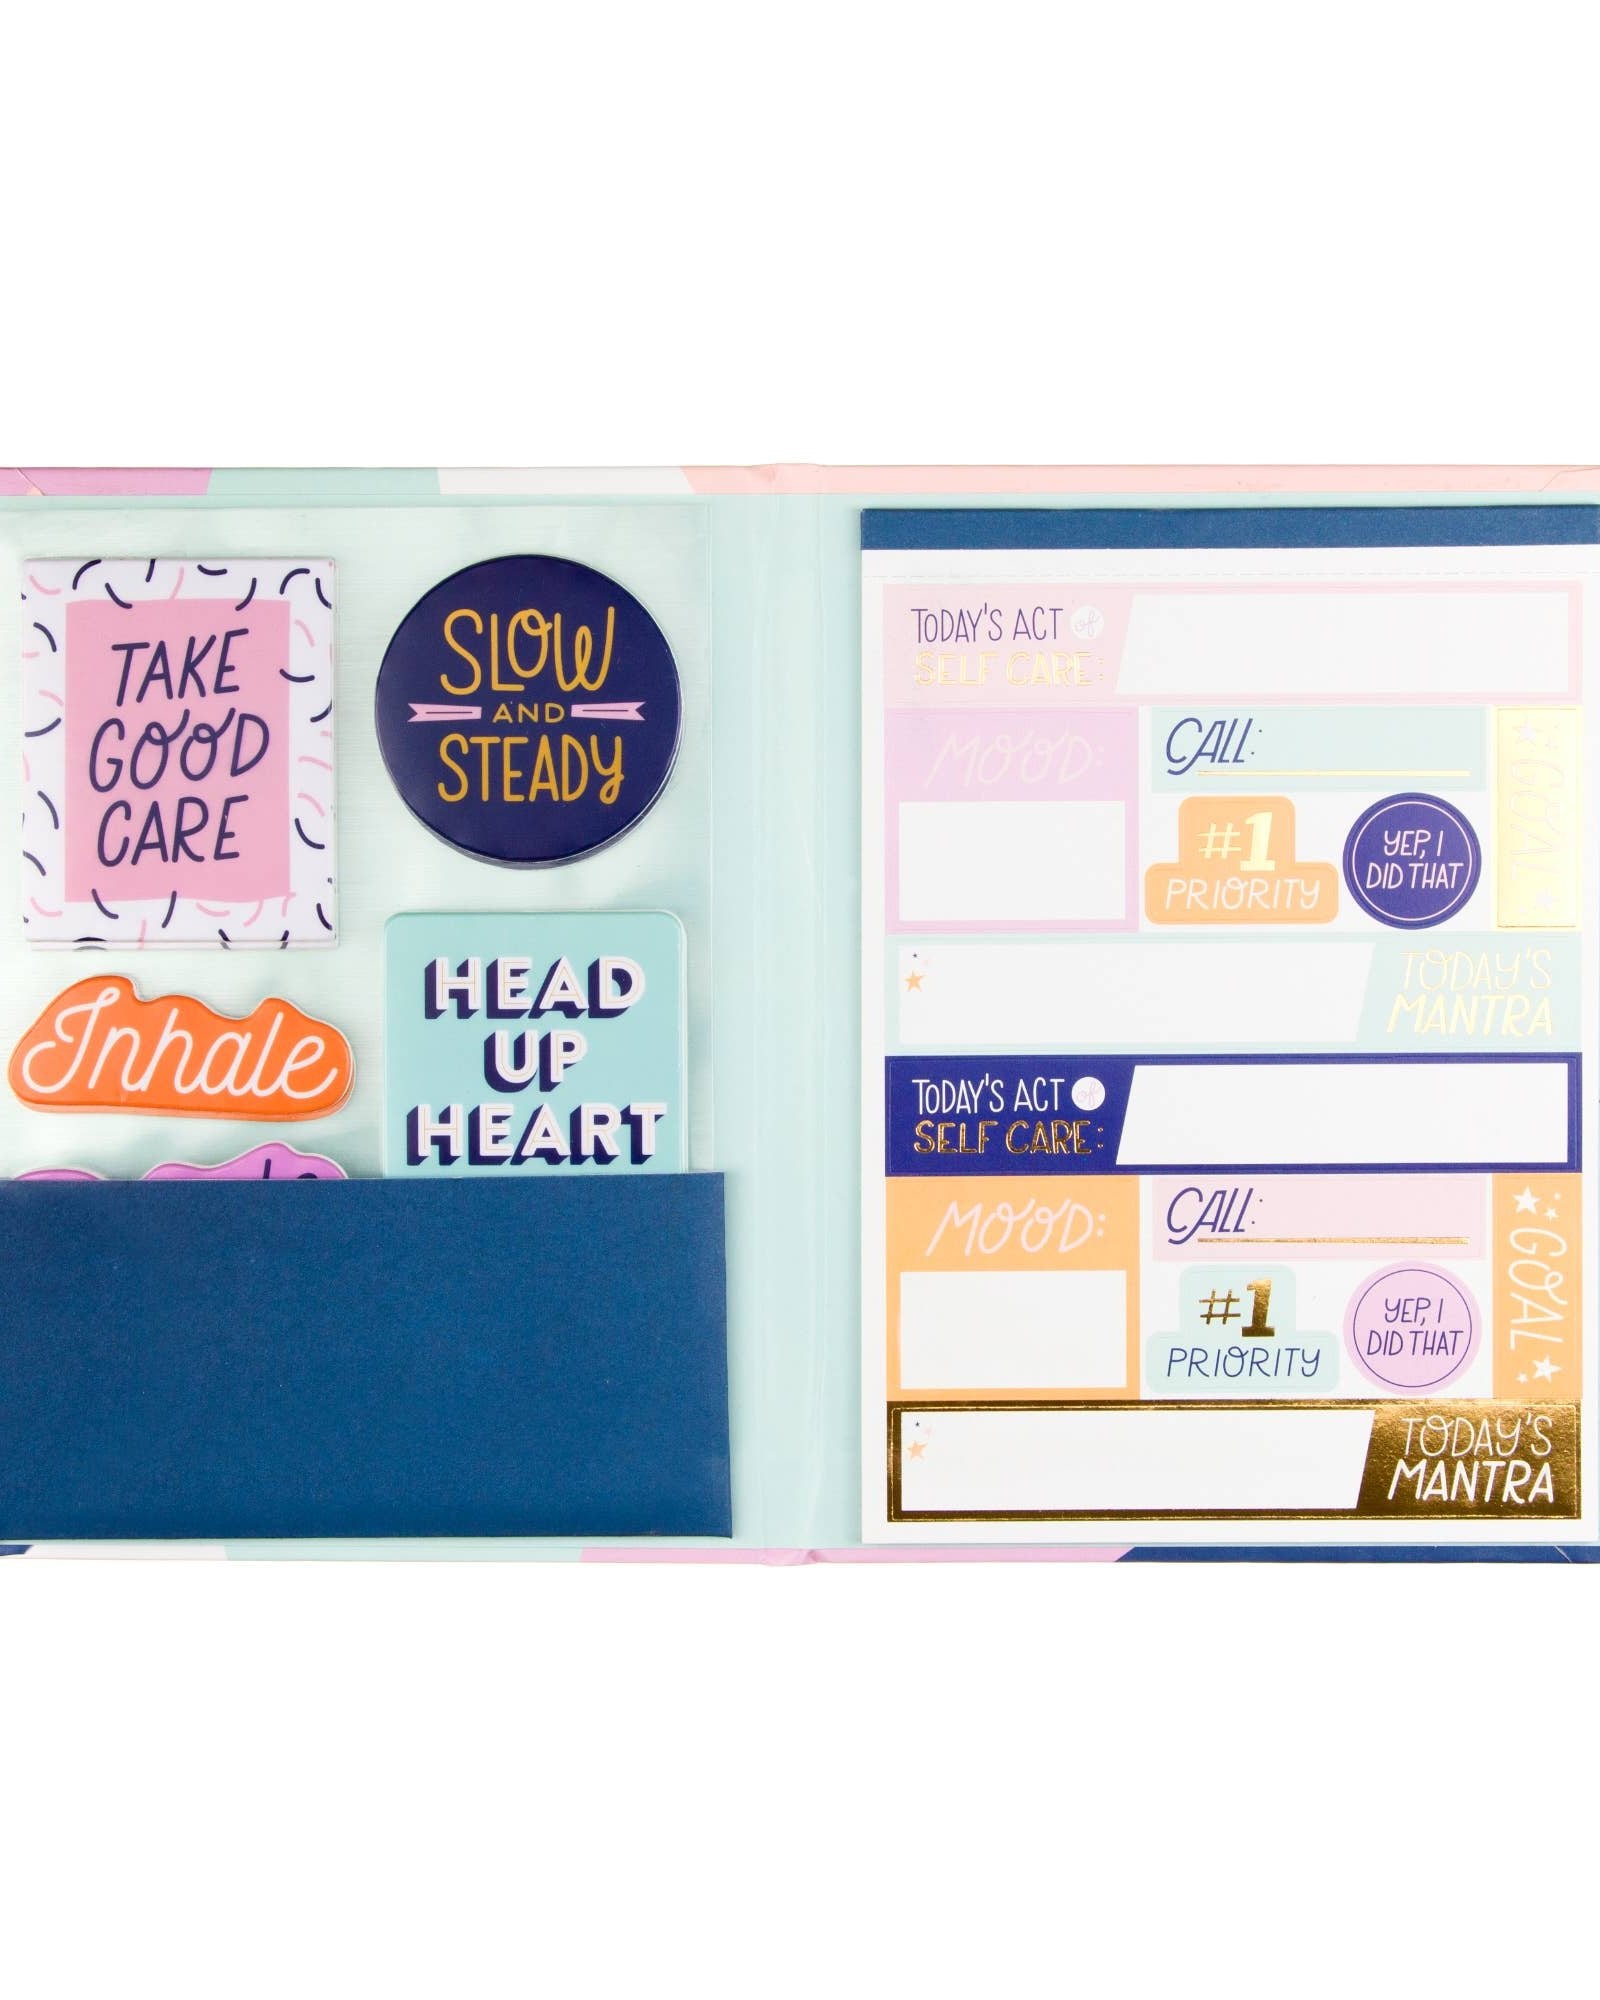 TAKE
GOOD
CARE
SLOW
AND
STEADY
Inhale
HEAD
UP
HEART
TODAY'S ACT of
SELF CARE:
MOOD:
CALL:
GOAL
#1
PRIORITY
YEP, I
DID THAT
TODAY'S
MANTRA
TODAY'S ACT of
SELF CARE:
MOOD:
CALL:
GOAL
#1
PRIORITY
YEP, I
DID THAT
TODAY'S
MANTRA